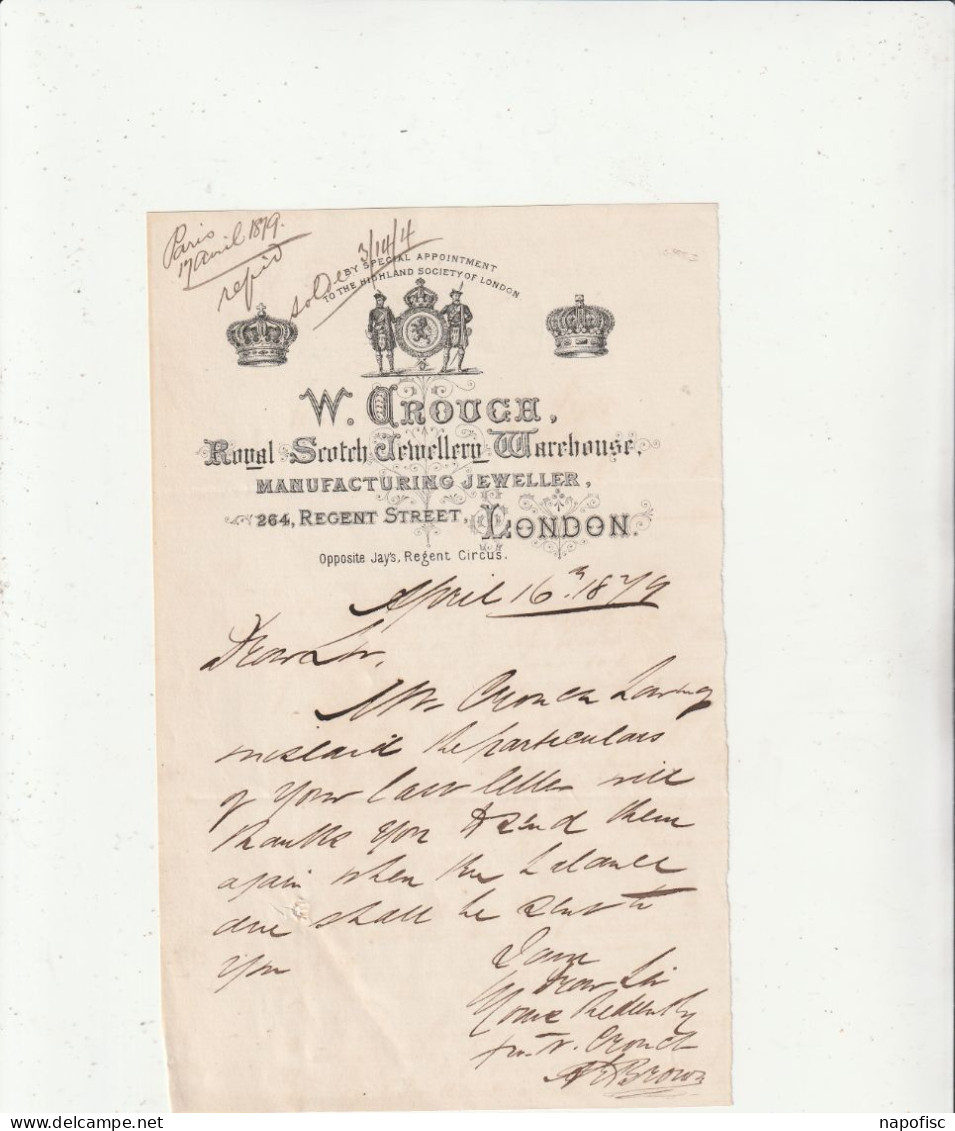 Paris
17 avril 1879.
repid
solde 3/14/4
BY SPECIAL APPOINTMENT
TO THE HIGHLAND SOCIETY OF LONDON
W. CROUCH,
Royal Scotch Jewellery Warehouse,
MANUFACTURING JEWELLER,
264, REGENT STREET, LONDON.
Opposite Jay's, Regent Circus.
April 16th 1879
Dear Sir,
Mr. Crouch having
mislaid the particulars
of your last letter will
thank you to send them
again when the balance
due shall be sent to
you
I am
Dear Sir
Yours
for W. Crouch
Brown
www.delcampe.net
napofisc